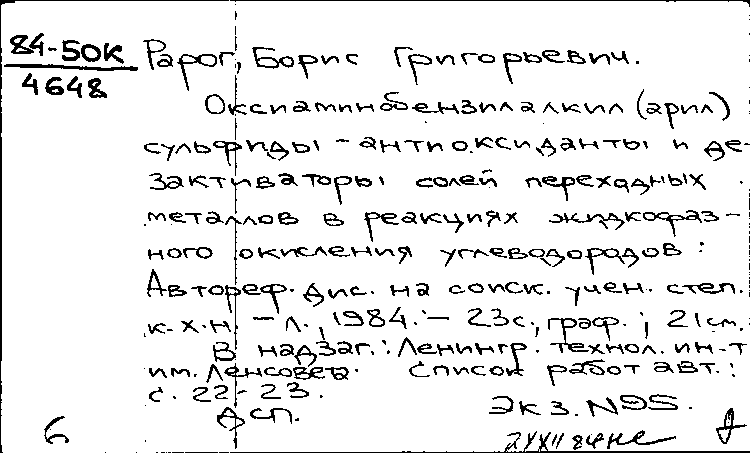 84-5ОК
4648
Рарог, Борис Григорьевич.
Оксиаминобензилалкил (арил)
сульфиды - антиоксиданты и де-
зактиваторы солей переходных
металлов в реакциях жидкофаз-
ного окисления углеводородов:
Автореф. дис. на соиск. учен. степ.
к.х.н. - Л., 1984. - 23с., граф.; 21см.
В надзаг.: Ленингр. технол. ин-т
им. Ленсовета. Список работ авт.:
с. 22-23.
ДСП.
Экз. №95.
6